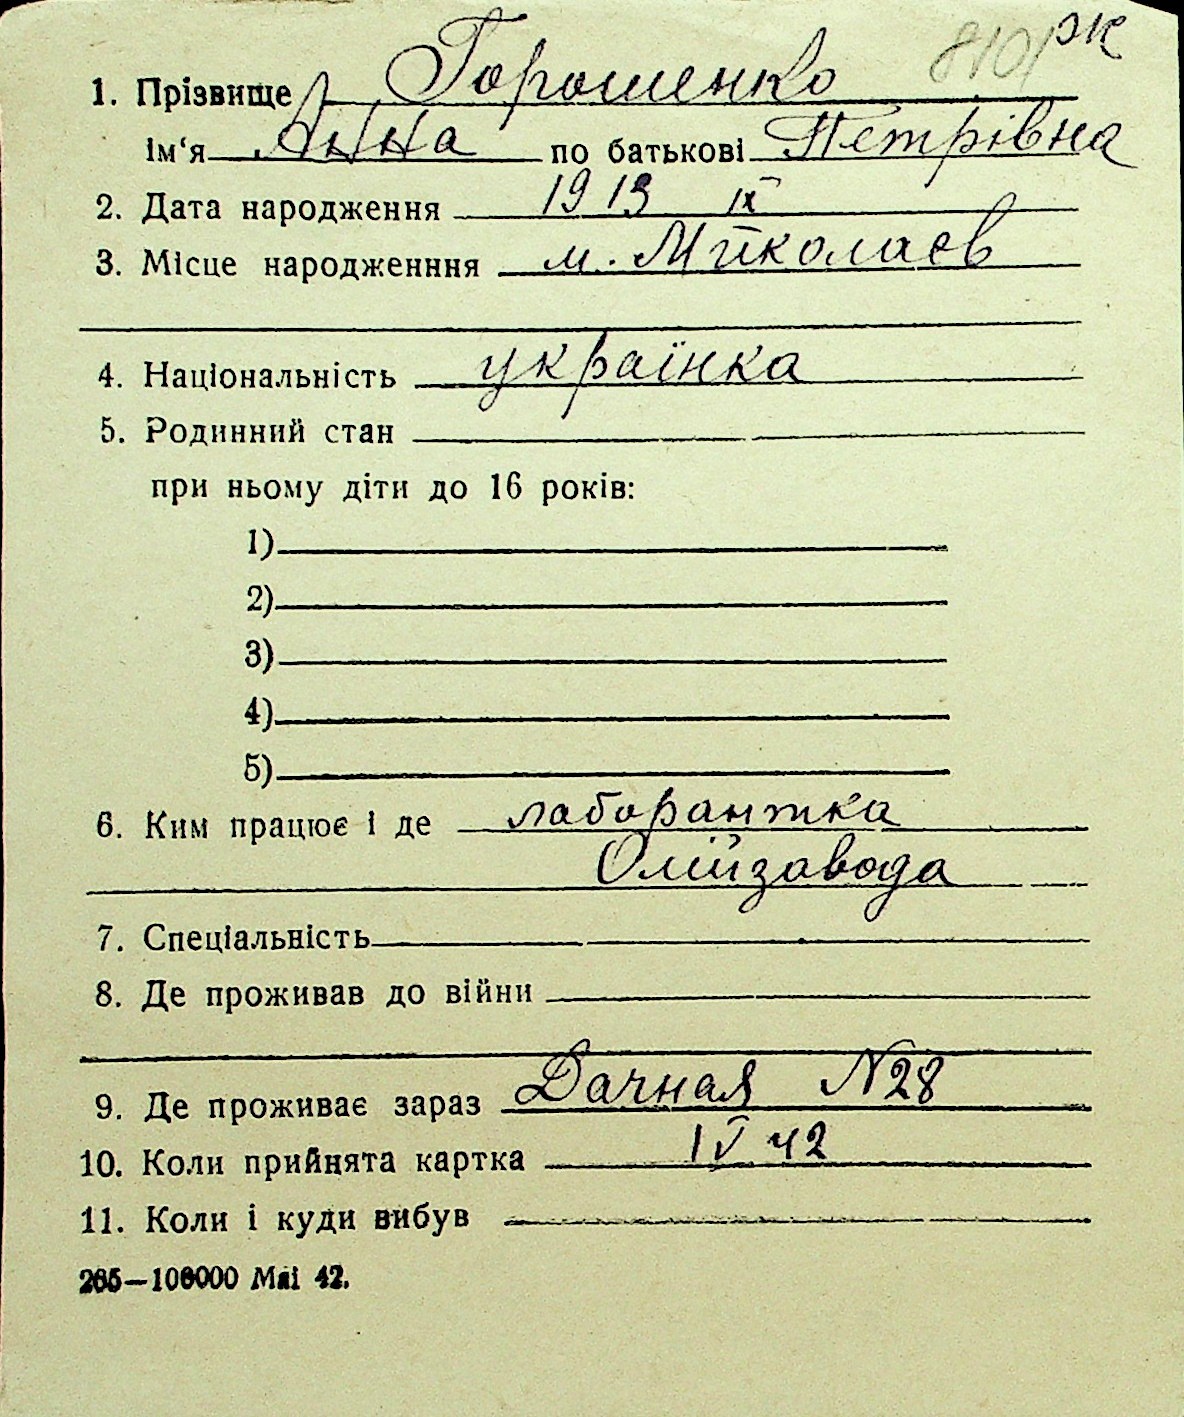 810/ ж
1. Прізвище Горошенко
ім'я Анна по батькові Петрівна
2. Дата народження 1913 IX
3. Місце народженння м. Миколаєв
4. Національність українка
5. Родинний стан
при ньому діти до 16 років:
1)
2)
3)
4)
5)
6. Ким працює і де лаборантка
Олійзавода
7. Спеціальність
8. Де проживав до війни
9. Де проживає зараз Дачная N28
10. Коли прийнята картка IV 42
11. Коли і куди вибув
265—100000 Маі 42.